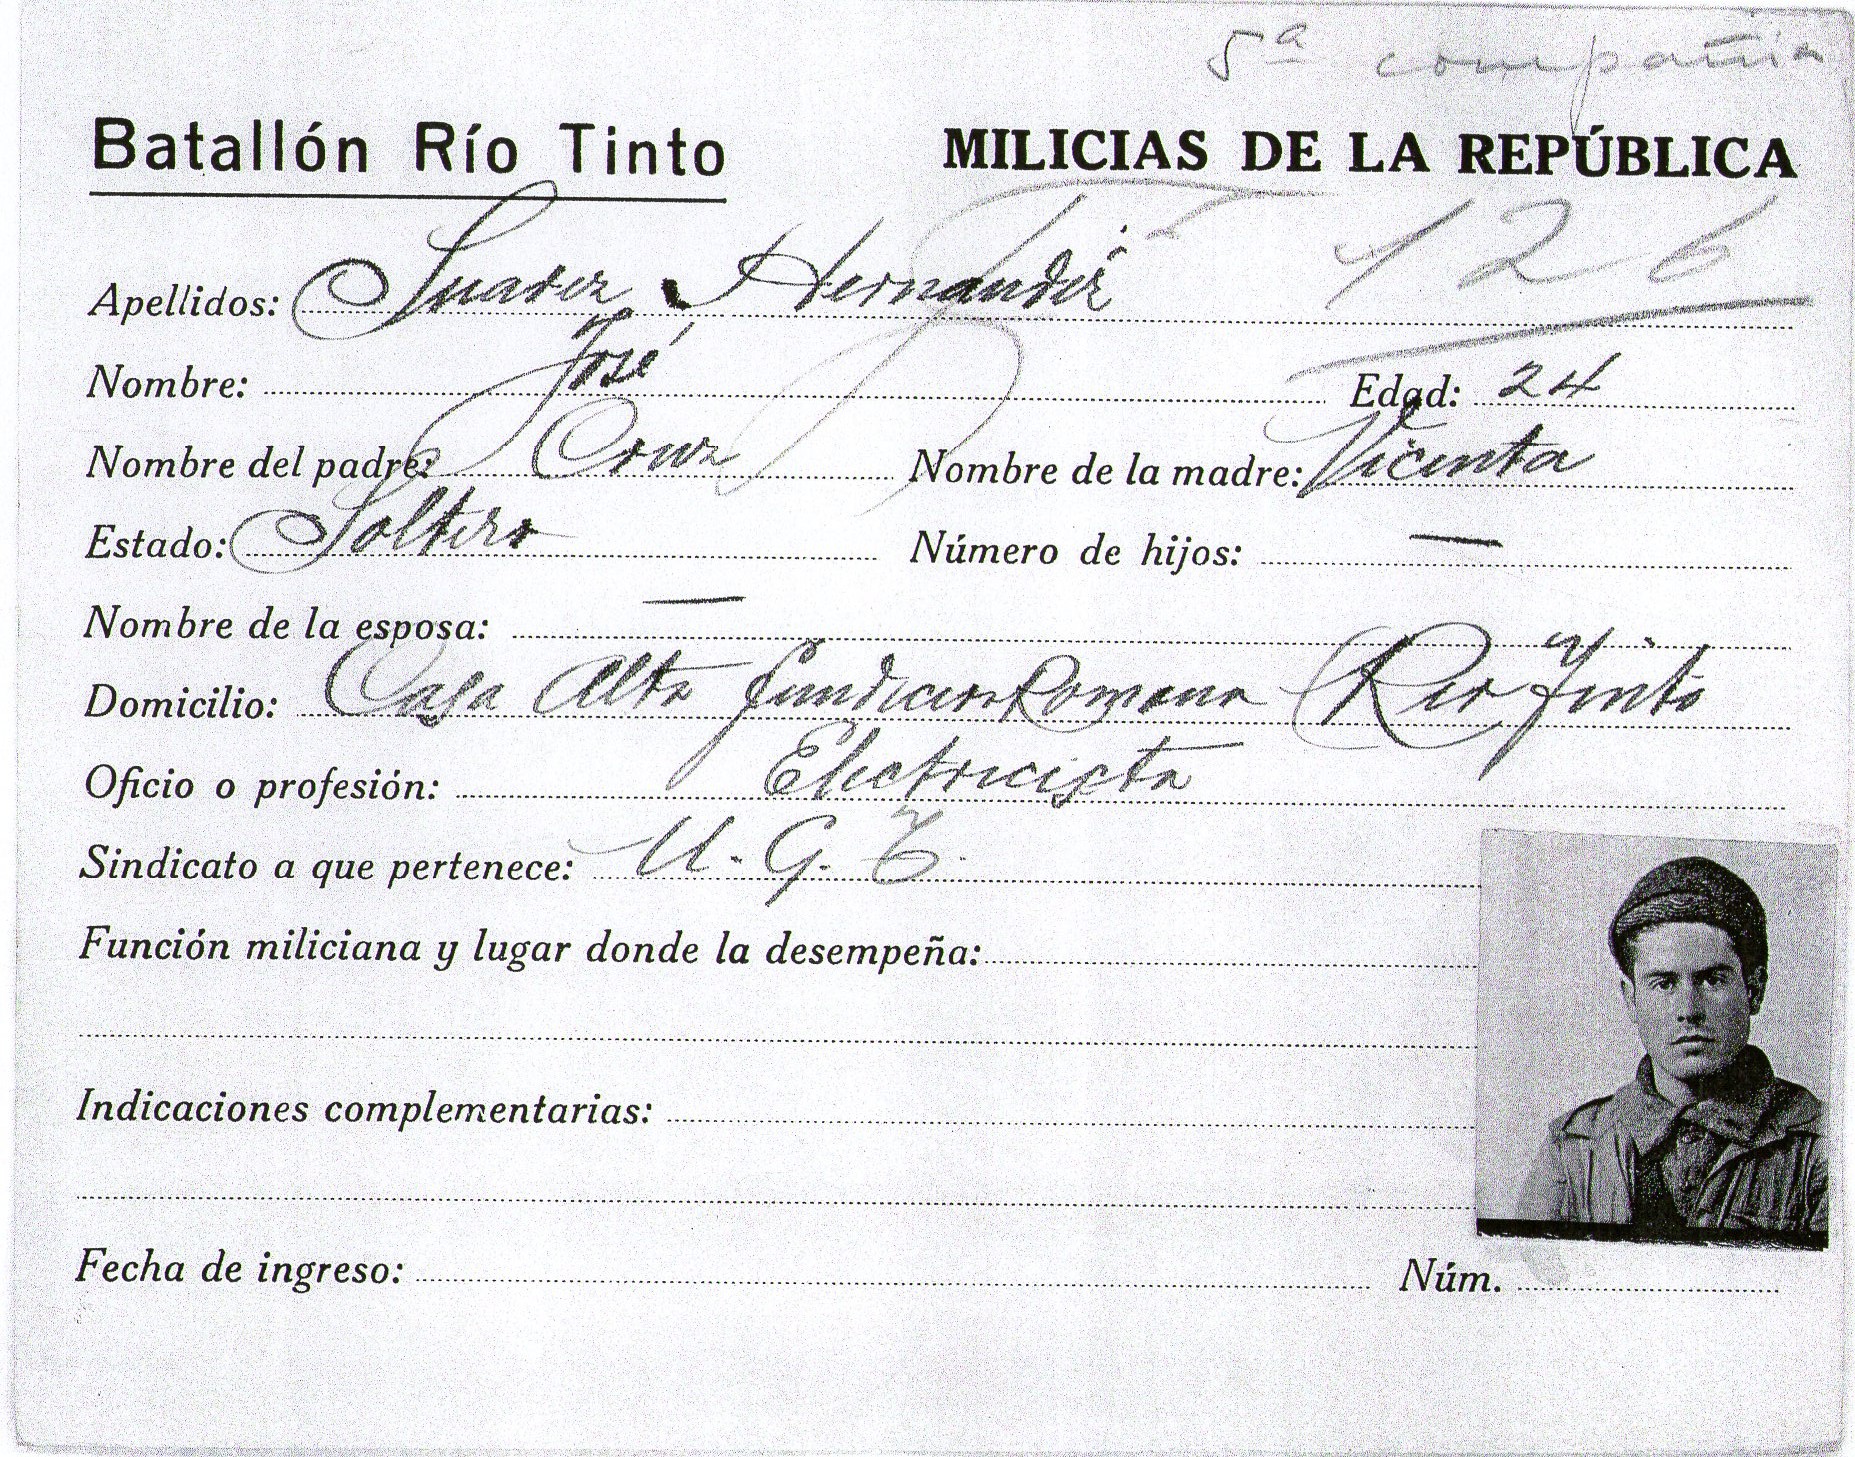 5ª compañia
Batallón Río Tinto MILICIAS DE LA REPÚBLICA
126
Apellidos: Suarez Hernandez
Nombre: José Edad: 24
Nombre del padre: Cruz Nombre de la madre: Vicenta
Estado: Soltero Número de hijos: —
Nombre de la esposa: —
Domicilio: Casa Alta fundicion Romana Rio Tinto
Oficio o profesión: Electricista
Sindicato a que pertenece: U. G. T.
Función miliciana y lugar donde la desempeña:
Indicaciones complementarias:
Fecha de ingreso: Núm.